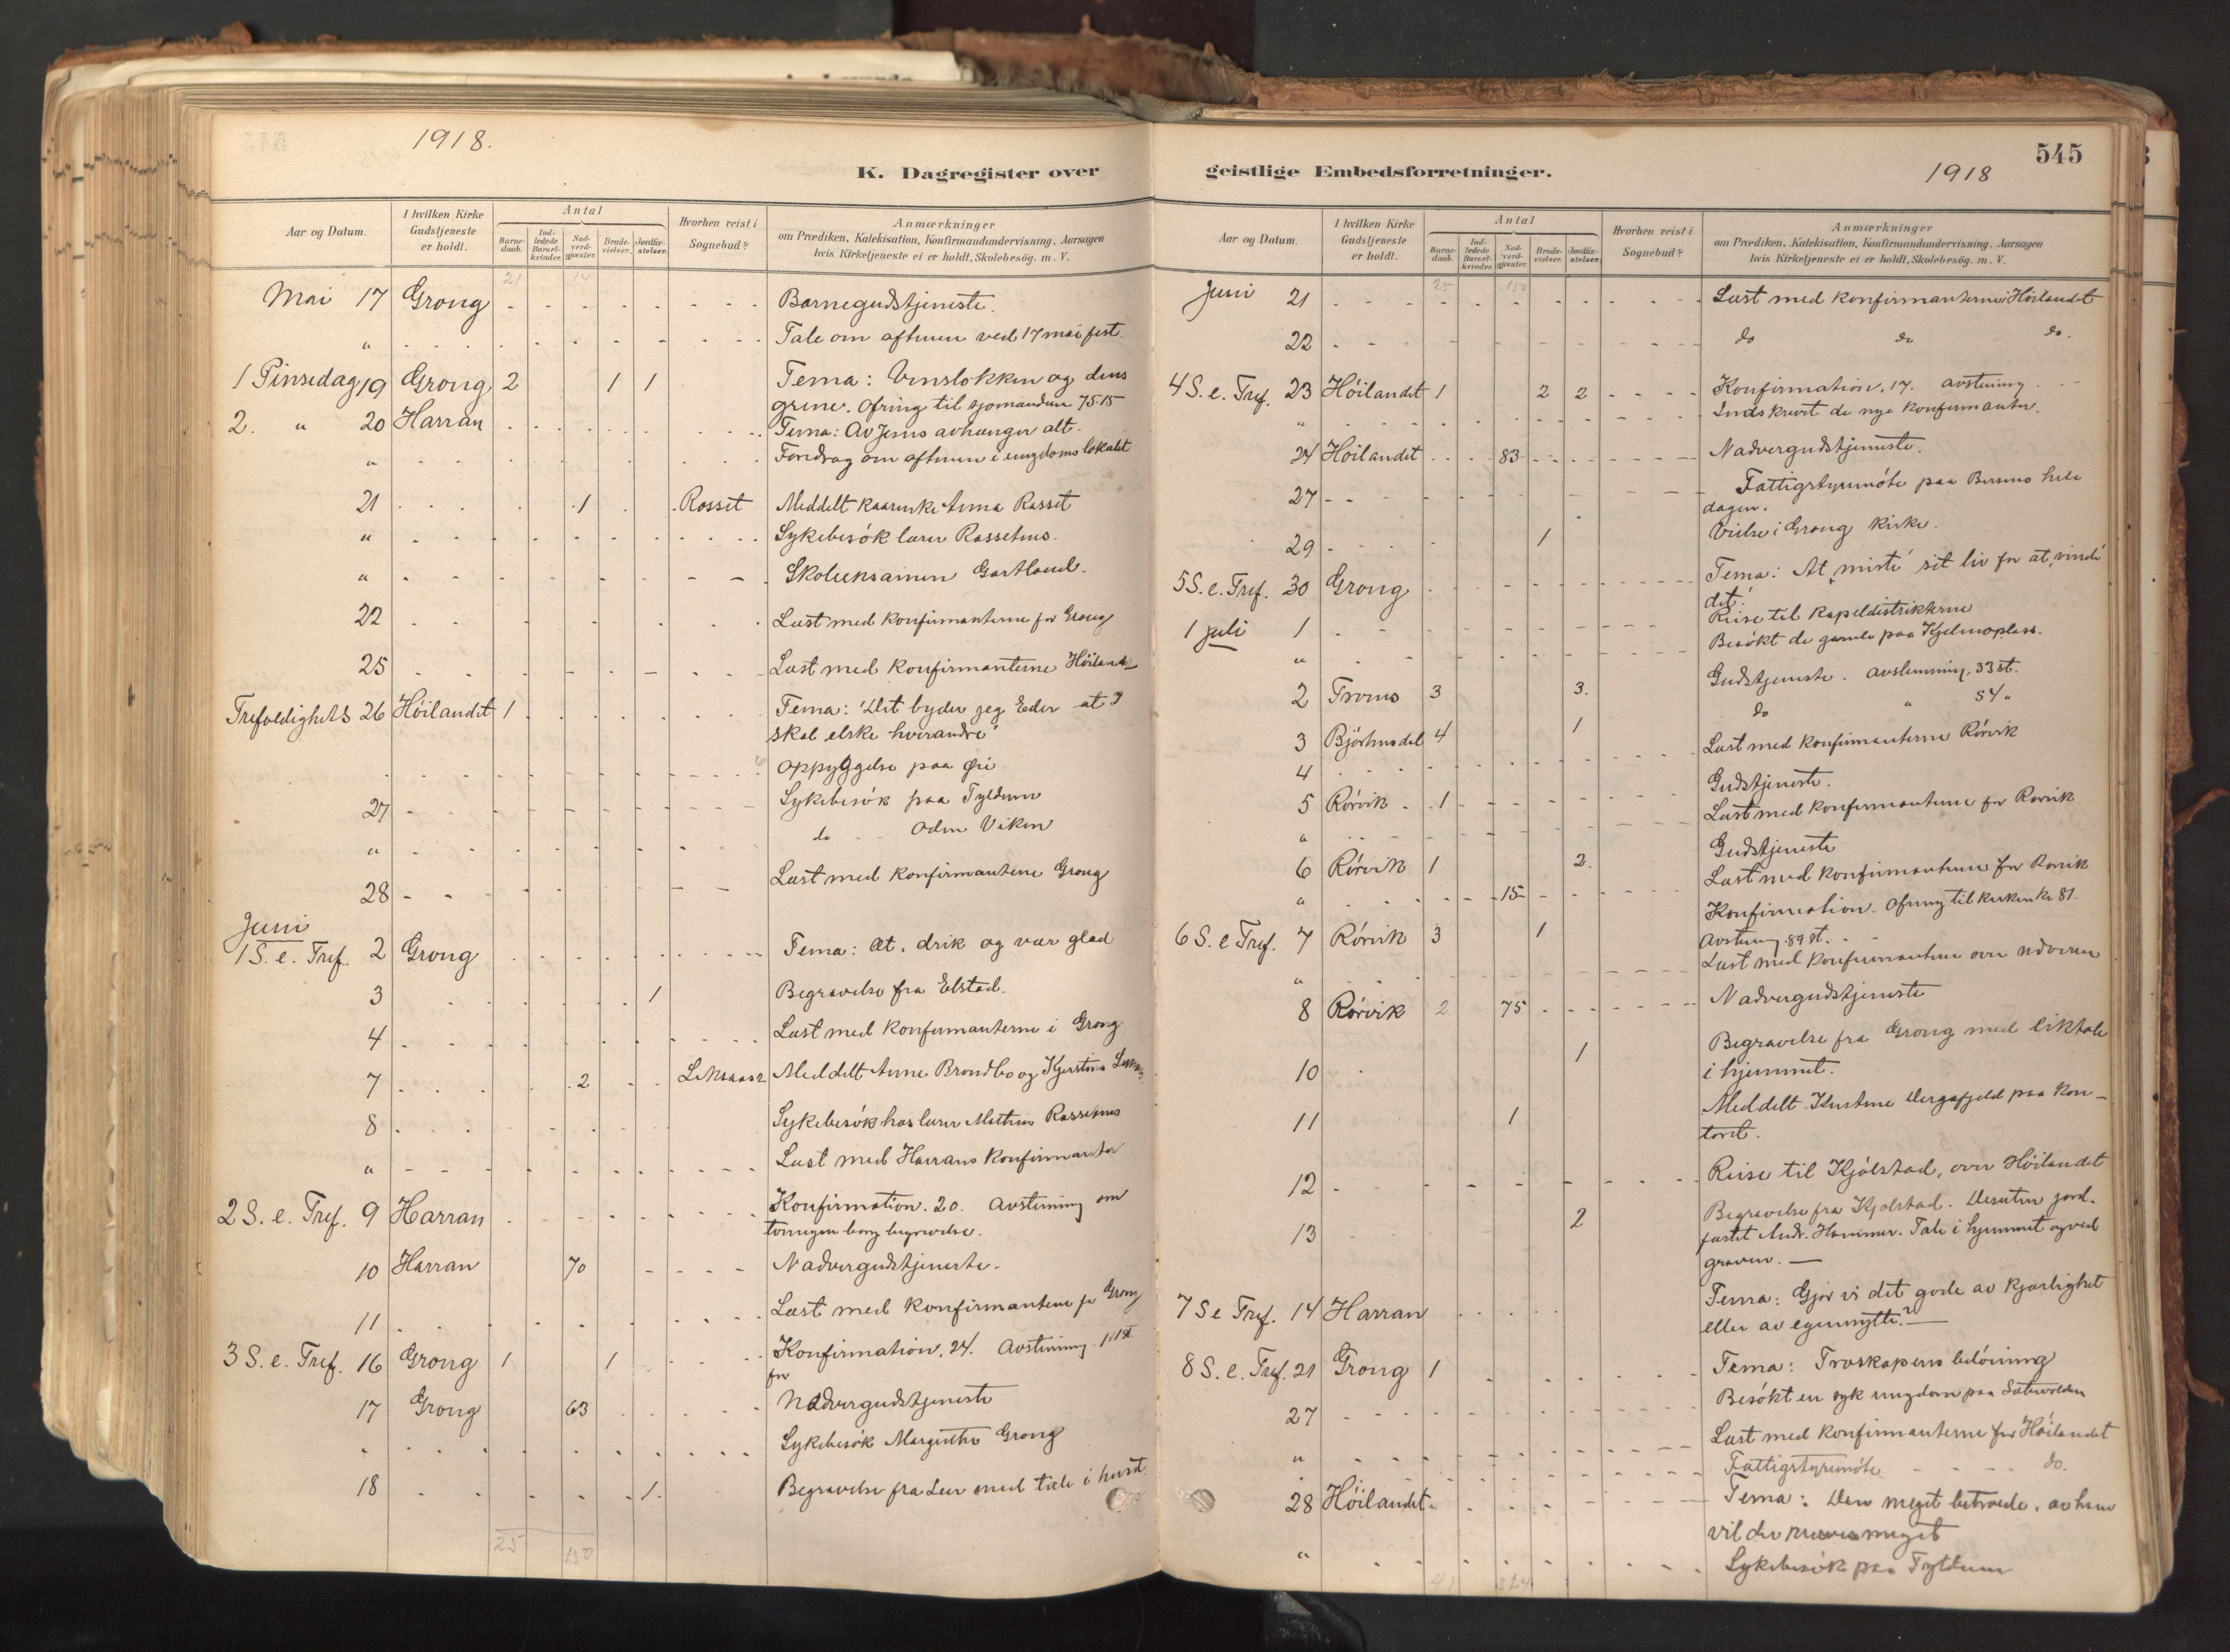 1918.
K. Dagregister over
Aar og Datum.
I hvilken Kirke Gudstjeneste er holdt.
Antal
Barne-daab.
Ind-ledede Barsel-kvinder.
Nad-verd-gjester.
Brude-vielser.
Jordfæ-stelser.
Hvorhen reist i Sognebud?
Anmærkninger
om Prædiken, Katekisation, Konfirmandundervisning, Aarsagen
hvis Kirketjeneste ei er holdt, Skolebesøg. m. V.
21 14
Mai 17 Grong Barnegudstjeneste.
" Tale om aftenen ved 17 mai fest.
1 Pinsedag 19 Grong 2 1 1 Tema: Vinstokken og dens
grene. Ofring til sjømanden 75.15
2. " 20 Harran Tema: Av Jesus avhænger alt.
" Foredrag om aftenen i ungdomslokalet
21 1 Rosset Meddelt Anna Rasset
" Sykebesök lærer Rassetnes.
" Skoleeksamen Gartland.
22 Læst med konfirmanterne for Grong
25 Læst med konfirmanterne Höiland
Trefoldighets 26 Höilandet 1 Tema: "Det byder jeg Eder at I
skal elske hverandre"
Oppyggelse paa Öie
27 Sykebesök paa Tyldum
" do Odin Viken
28 Læst med konfirmantene Grong
Juni
1 S. e. Tref. 2 Grong Tema: Æt, drik og vær glad
3 1 Begravelse fra Elstad.
4 Læst med konfirmanterne i Grong
7 2 Meddelt Anne Brondbo og Kjerstina
8 Sykebesök hos lærer Rassetnes
" Læst med Harrans konfirmanter
2 S. e. Tref. 9 Harran Konfirmation. 20. Avstemning om
tvungen borg. begravelse.
10 Harran 70 Nadvergudstjeneste.
11 Læst med konfirmantene fr Grong
3 S. e. Tref. 16 Grong 1 1 Konfirmation, 24. Avstemning.
for
17 Grong 63 Nadvergudstjeneste
" Sykebesök Margrethe Grong
18 1. Begravelse fra Lur med tale i huset
25 150
geistlige Embedsforretninger.
545
1918
Aar og Datum.
I hvilken Kirke Gudstjeneste er holdt.
Antal
Barne-daab.
Ind-ledede Barsel-kvinder.
Nad-verd-gjester.
Brude-vielser.
Jordfæ-stelser.
Hvorhen reist i Sognebud?
Anmærkninger
om Prædiken, Katekisation, Konfirmandundervisning, Aarsagen
hvis Kirketjeneste ei er holdt, Skolebesøg. m. V.
25 150
Juni 21 Læst med konfirmanterne i Höilandet
22 do do do.
4 S. e. Tref. 23 Höilandet 1 2 2 Konfirmation, 17. avstemning
" Indskrevet de nye konfirmanter.
24 Höilandet 83 Nadvergudstjeneste.
27 Fattigstyremöte paa Bersmo hele
dagen.
29 1 Vielse i Grong kirke.
5 S. e. Tref. 30 Grong Tema: At "miste" sit liv for at "vinde"
det.
1 juli 1 Reise til Kapeldistrikterne
" Besökt de gamle paa Kjelmoplass.
2 Trones 3 3. Gudstjeneste. avstemning, 33 st.
3 Björhusdal 4 1 do " 54 "
4 Læst med konfirmanterne Rörvik
5 Rörvik 1 Gudstjeneste.
" Læst med konfirmanterne for Rörvik
6 Rörvik 1 2. Gudstjeneste
" 15 Læst med konfirmanterne for Rörvik
6 S. e Tref. 7 Rörvik 3 1 Konfirmation. Ofring til kirken kr 81.
Avstemning. 89 st.
" Læst med konfirmantene over nadveren
8 Rörvik 2 75 Nadvergudstjeneste
10 1 Begravelse fra Grong med liktale
i hjemmet.
11 1 Meddelt Kristine Dergafjeld paa kon-
toret.
12 Reise til Kjölstad, over Höilandet
13 2 Begravelse fra Kjolstad. Desuten jord-
fæstet Andr. Hammer. Tale i hjemmet og ved
graven.
7 S e Tref. 14 Harran Tema: Gjör vi det gode av kjærlighet
eller av egennytte?
8 S. e. Tref. 21 Grong 1 Tema: Troskapens belönning
27 Besökt en syk ungdom paa
" Læst med konfirmanterne for Höilandet
Fattigstyremöte do.
28 Höilandet Tema: Den meget betroede, av ham
vil der kræves meget
" Sykebesök paa Tyldum
41 324